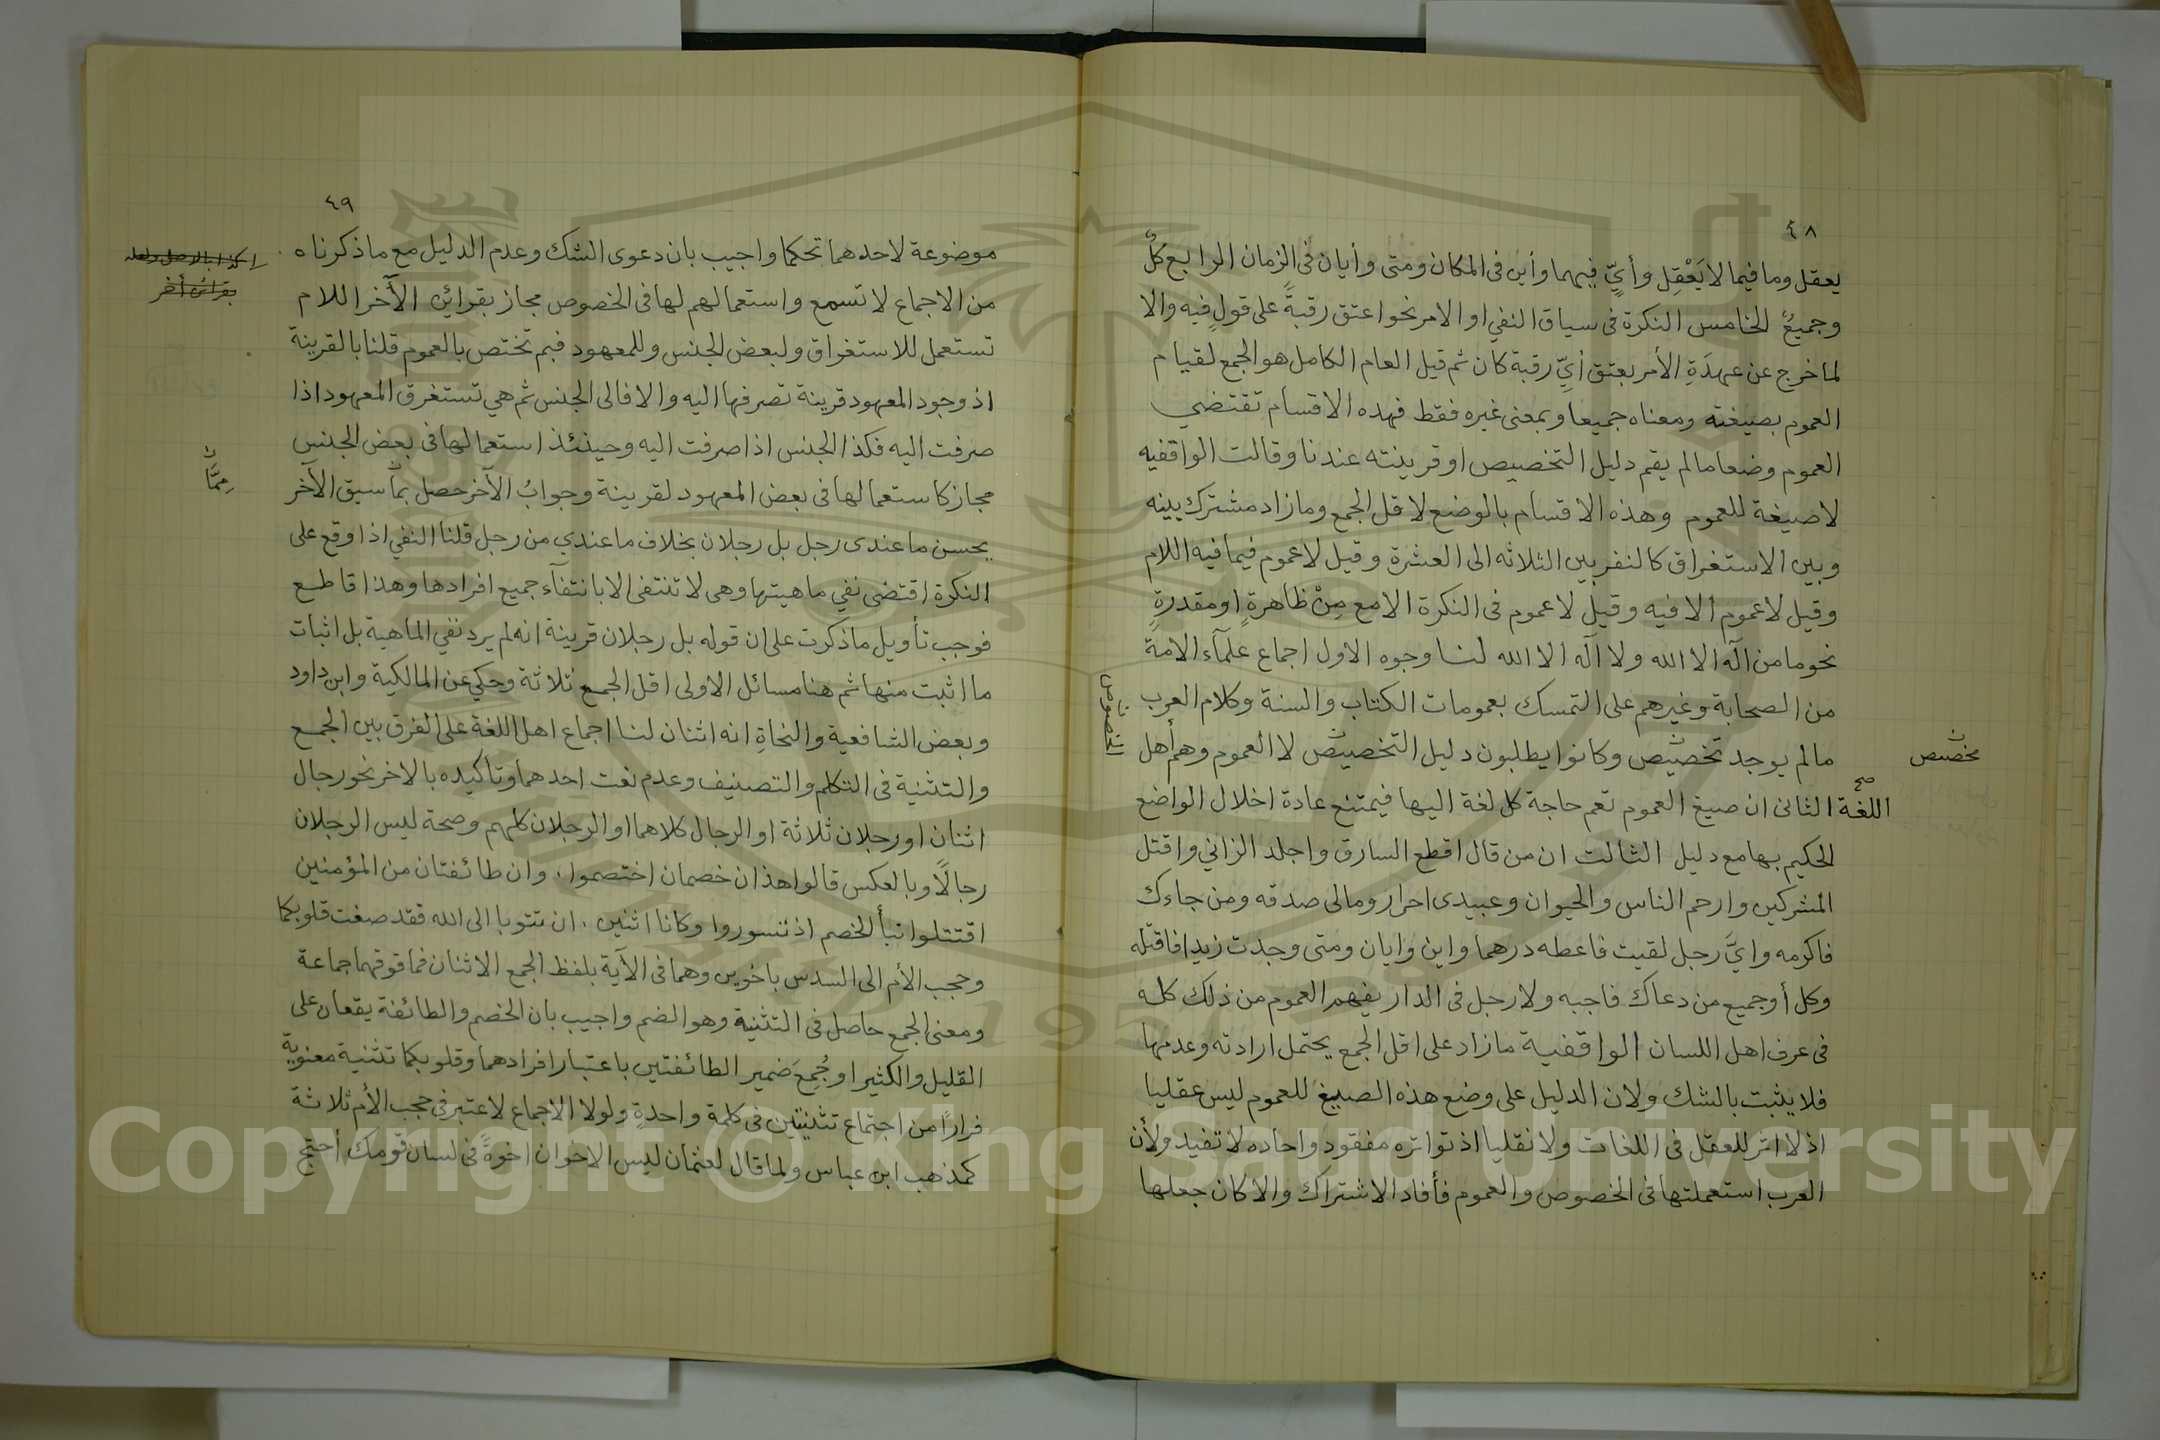 ٤٨
يعقل وما فيما لا يَعْقِل وأيٍّ فيهما وأين في المكان ومتى وأيان في الزمان الرابع كلٌ
وجميعٌ الخامس النكرة في سياق النفي او الامر نحو اعتق رقبةً على قولٍ فيه والا
لما خرج عن عهدَةِ الأمر بعتق أيّ رقبة كان ثم قيل العام الكامل هو الجمع لقيام
العموم بصيغته ومعناه جميعا وبمعنى غيره فقط فهده الاقسام تقتضي
العموم وضعا مالم يقم دليل التخصيص او قرينته عندنا وقالت الواقفيه
لا صيغة للعموم وهذه الاقسام بالوضع لاقل الجمع وما زاد مشترك بينه
وبين الاستغراق كالنفر بين الثلاثه الى العشرة وقيل لا عموم فيما فيه اللام
وقيل لا عموم الا فيه وقيل لا عموم في النكرة الا مع مِنْ ظاهرةٍ او مقدرةٍ
نحو ما من اله الا الله ولا اله الا الله لنا وجوه الاول اجماع علمآء الامة
من الصحابة وغيرهم على التمسك بعمومات الكتاب والسنة وكلام العرب
مالم يوجد تخصيص وكانوا يطلبون دليل التخصيص لا العموم وهم أهل
مخصص
صح
اللغة الثاني ان صيغ العموم تعم حاجة كل لغة اليها فيمتنع عادة اخلال الواضع
الحكيم بها مع دليل الثالث ان من قال اقطع السارق واجلد الزاني واقتل
المشركين وارحم الناس والحيوان وعبيدى احرار ومالى صدقه ومن جاءك
فاكرمه وايَّ رجل لقيت فاعطه درهما واين وايان ومتى وجدت زيدا فاقتله
وكل أو جميع من دعاك فاجبه ولا رجل في الدار يفهم العموم من ذلك كله
في عرف اهل اللسان الواقفية ما زاد على اقل الجمع يحتمل ارادته وعدمها
فلا يثبت بالشك ولان الدليل على وضع هذه الصيغ للعموم ليس عقليا
اذ لا اثر للعقل في اللغات ولا نقليا اذ تواتره مفقود واحاده لا تفيد ولأن
العرب استعملتها في الخصوص والعموم فأفاد الاشتراك والا كان جعلها
٤٩
موضوعة لاحدهما تحكما واجيب بان دعوى الشك وعدم الدليل مع ما ذكرناه
من الاجماع لا تسمع واستعمالهم لها في الخصوص مجاز بقرائن الآخر اللام
بقرائن أخر
تستعمل للاستغراق ولبعض الجنس وللمعهود فبم تختص بالعموم قلنا بالقرينة
اذ وجود المعهود قرينة تصرفها اليه والا فالى الجنس ثم هي تستغرق المعهود اذا
صرفت اليه فكذا الجنس اذا صرفت اليه وحينئذ استعمالها في بعض الجنس
مجاز كاستعمالها في بعض المعهود لقرينة وجوابُ الآخر حصل بما سبق الآخر
يحسن ما عندى رجل بل رجلان بخلاف ما عندي من رجل قلنا النفي اذا وقع على
النكرة اقتضى نفي ماهيتها وهى لا تنتفى الا بانتفآء جميع افرادها وهذا قاطع
فوجب تأويل ما ذكرت على ان قوله بل رجلان قرينة انه لم يرد نفي الماهية بل اثبات
ما اثبت منها ثم هنا مسائل الاولى اقل الجمع ثلاثة وحكي عن المالكية وابن داود
وبعض الشافعية والنحاةِ انه اثنان لنا اجماع اهل اللغة على الفرق بين الجمع
والتثنية في التكلم والتصنيف وعدم نعت احدهما وتاكيده بالاخر نحو رجال
اثنان او رجلان ثلاثة او الرجال كلاهما او الرجلان كلهم وصحة ليس الرجلان
رجالًا وبالعكس قالوا هذان خصمان اختصموا، وان طائفتان من المؤمنين
اقتتلوا نبأ الخصم اذ تسوروا وكانا اثنين، ان تتوبا الى الله فقد صغت قلوبكما
وحجب الأم الى السدس باخوين وهما في الآية بلفظ الجمع الاثنان فما فوقهما جماعة
ومعنى الجمع حاصل في التثنية وهو الضم واجيب بان الخصم والطائفة يقعان على
القليل والكثير او جُمِعَ ضمير الطائفتين باعتبار افرادهما وقلوبكما تثنية معنوية
فرارًا من اجتماع تثنيتين في كلمة واحدةٍ ولولا الاجماع لاعتبر في حجب الأم ثلاثة
كمذهب ابن عباس ولما قال لعثمان ليس الاخوان اخوةً في لسان قومك أحتج
Copyright © King Saud University